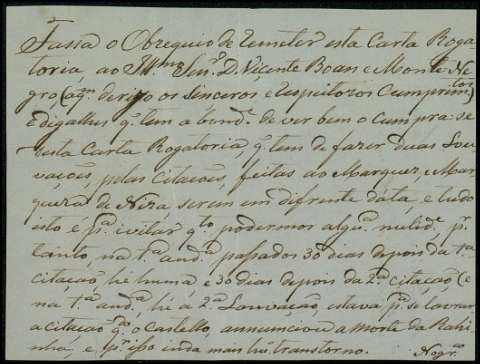 Fassa o Obzequio de Remeter esta Carta Roga-
toria, ao Ill.mo Snr. D. Vicente Boan e Monte Ne-
gro, (a q.m derijo os sinceros e respeitozos Cumprim.tos)
e digalhes q. tem a bond.e de ver bem o cumpra-se
desta Carta Rogatoria, q. tem de fazer duas Lou-
vaçoes, pelas Citacoes, feitas ao Marquez, e Mar-
queza de Niza, serem em difrente dáta, e tudo
isto e p.a ivitar q.to podermos alg.a nulid.e p.r
tanto, na 1.a aud.a passados 30 dias depois da 1.a
citacaõ, hé huma e 30 dias depois da 2.a citacaõ (e
na 1.a aud.a hé á 2.a Louvacaõ, estava p.a se lavrar
a citacaõ q.do o Castello, annunciou a morte da Rahi-
nhá, e p.r isso inda mais hú transtorno.